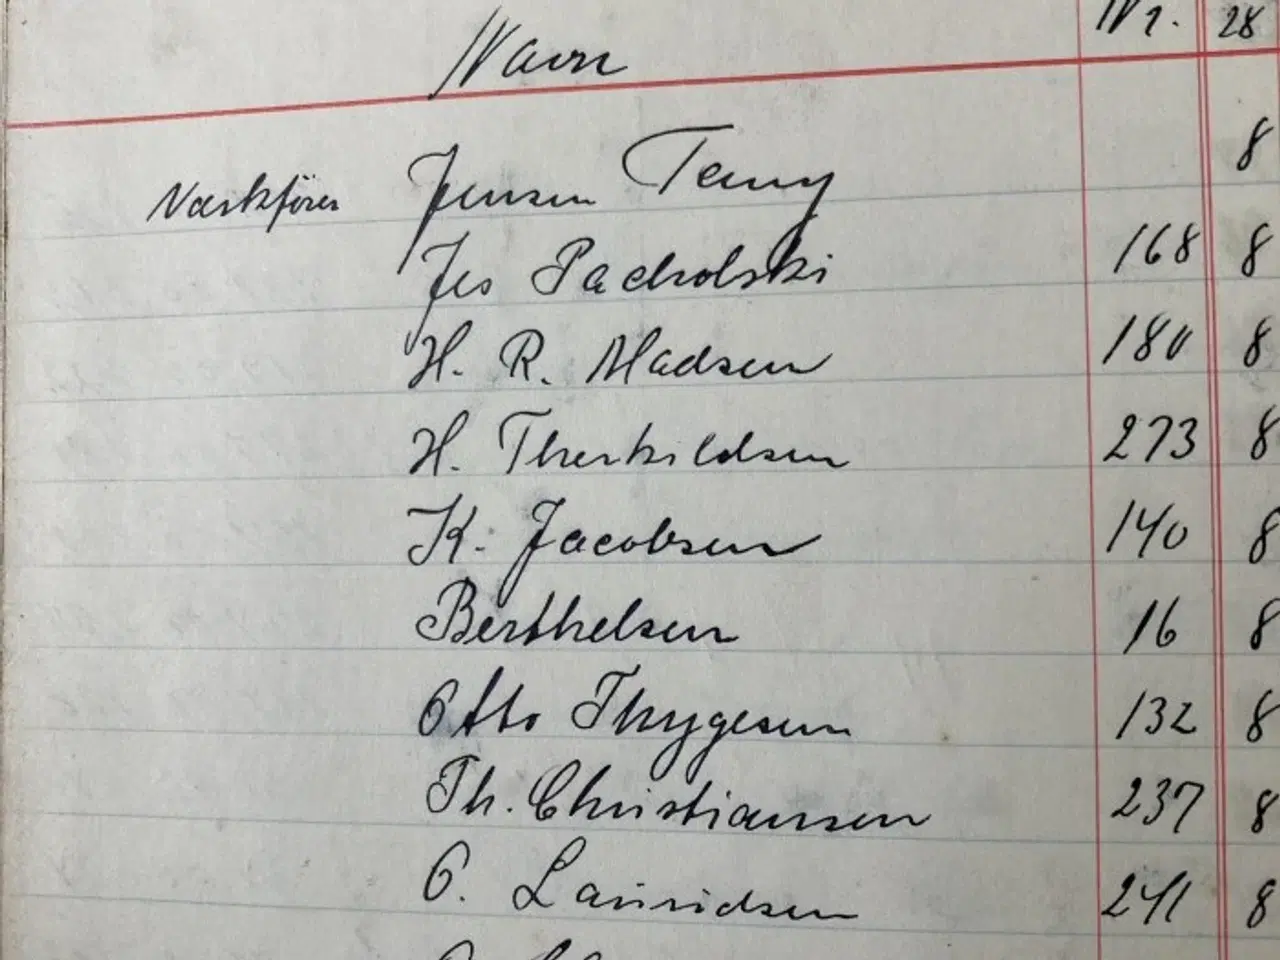 Navn Nr. 28
Værkfører Jensen Temy 8
Jes Pacholski 168 8
H. R. Madsen 180 8
H. Therkildsen 273 8
K. Jacobsen 140 8
Berthelsen 16 8
Otto Thygesen 132 8
Th. Christiansen 237 8
O. Lauridsen 241 8